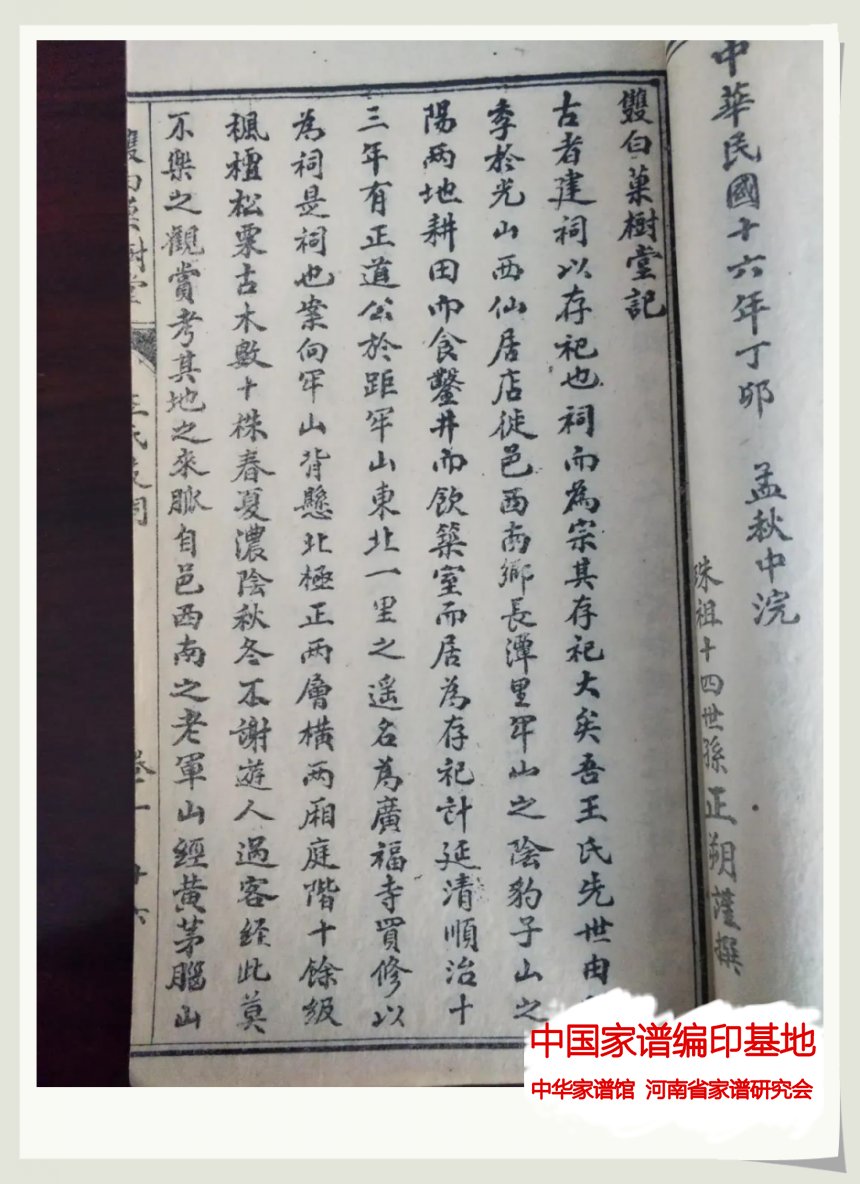 中華民國十六年丁卯 孟秋中浣
珠祖十四世孫正朔謹撰
雙白菓樹堂記
古者建祠以存祀也祠而為宗其存祀大矣吾王氏先世由
季於光山西仙居店徙邑西南鄉長潭里牢山之陰豹子山之
陽兩地耕田而食鑿井而飲築室而居為存祀計延清順治十
三年有正道公於距牢山東北一里之遥名為廣福寺買修以
為祠是祠也案向牢山背懸北極正兩層橫兩厢庭階十餘級
楓檀松栗古木數十株春夏濃陰秋冬不謝遊人過客経此莫
不樂之觀賞考其地之來脈自邑西南之老軍山經黄茅腦山
雙白菓樹堂
王氏支祠
卷一
十六
中国家谱编印基地
中华家谱馆 河南省家谱研究会